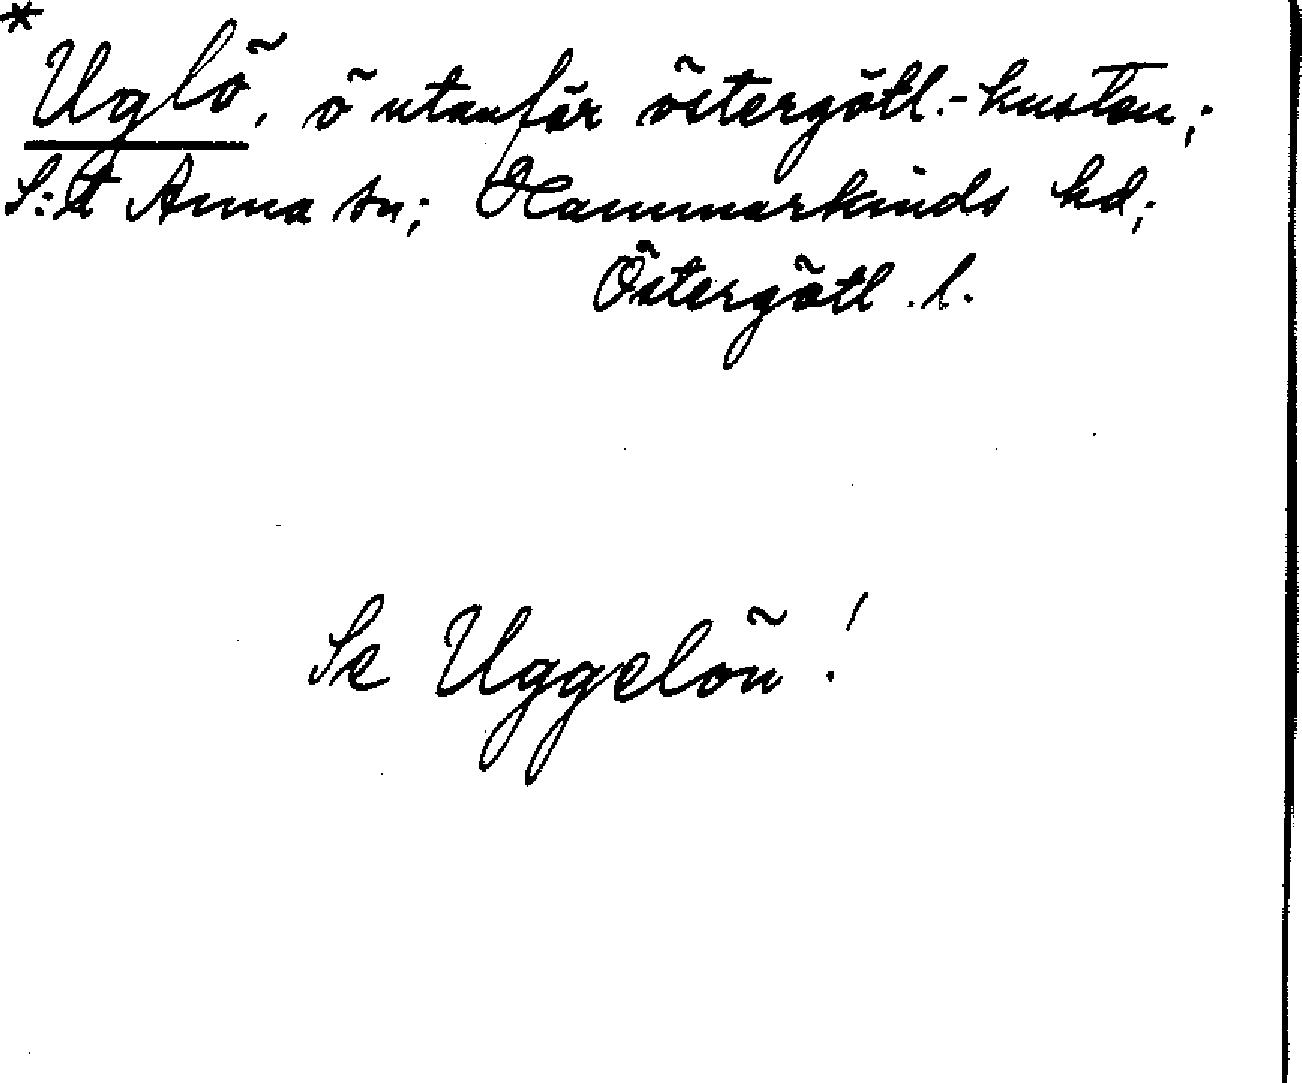 *
Uglö, ö utanför östergötl.-kusten;
S:t Anna sn; Hammarkinds hd;
Östergötl. l.
Se Uggelön!